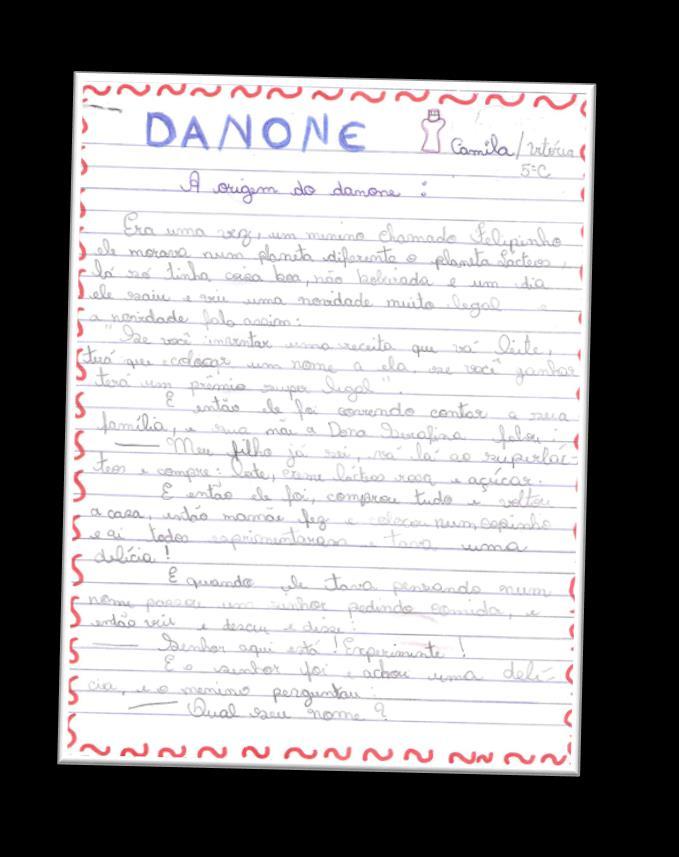 DANONE
Camila/Vitória
5ºC
A origem do danone :
Era uma vez, um minino chamado Felipinho
ele morava num planeta diferente o planeta Lácteos,
lá só tinha coisa boa, não e um dia
ele saiu e viu uma novidade muito legal e
a novidade fala assim:
"Se você inventar uma receita que vá leite,
terá que colocar um nome a ela, se você ganhar
terá um prêmio super legal".
E então ele foi correndo contar a sua
família, e sua mãe a Dona Serafina falou:
— Meu filho já sei, vá lá ao superlác-
teos e compre: leite, creme lácteo rosa e açúcar.
E então ele foi, comprou tudo e voltou
a casa, então mamãe fez e colocou num copinho
e ai todos exprimentaram e tava uma
delícia!
E quando ele tava pensando num
nome passou um senhor pedindo comida, e
então viu e desceu e disse:
— Senhor aqui está! Experimente!
E o senhor foi e achou uma delí-
cia, e o menino perguntou:
— Qual seu nome?